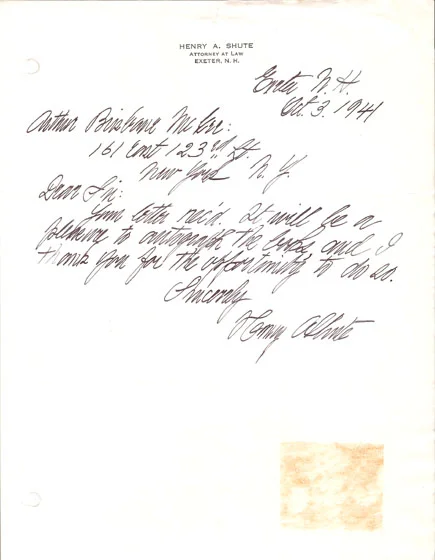 HENRY A. SHUTE
ATTORNEY AT LAW
EXETER, N. H.
Exeter N. H.
Oct. 3. 1941
Arthur Brisbane McGee:
161 East 123rd St.
New York N. Y.
Dear Sir:
Your letter rec'd. It will be a
pleasure to autograph the books and I
thank you for the opportunity to do so.
Sincerely
Henry A Shute